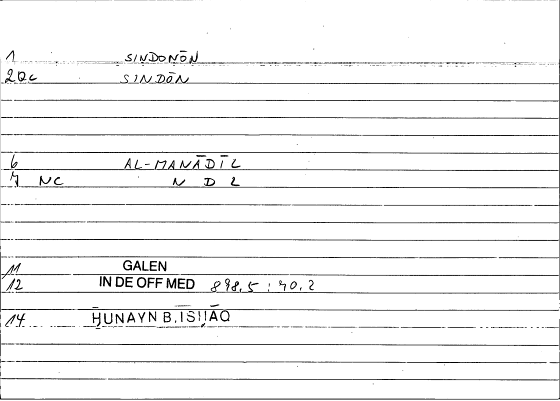 1 SINDONŌN
2QC SINDŌN
6 AL-MANĀDĪL
7 NC N D L
11 GALEN
12 IN DE OFF MED 898.5 : 40.2
14 ḤUNAYN B. ISḤĀQ